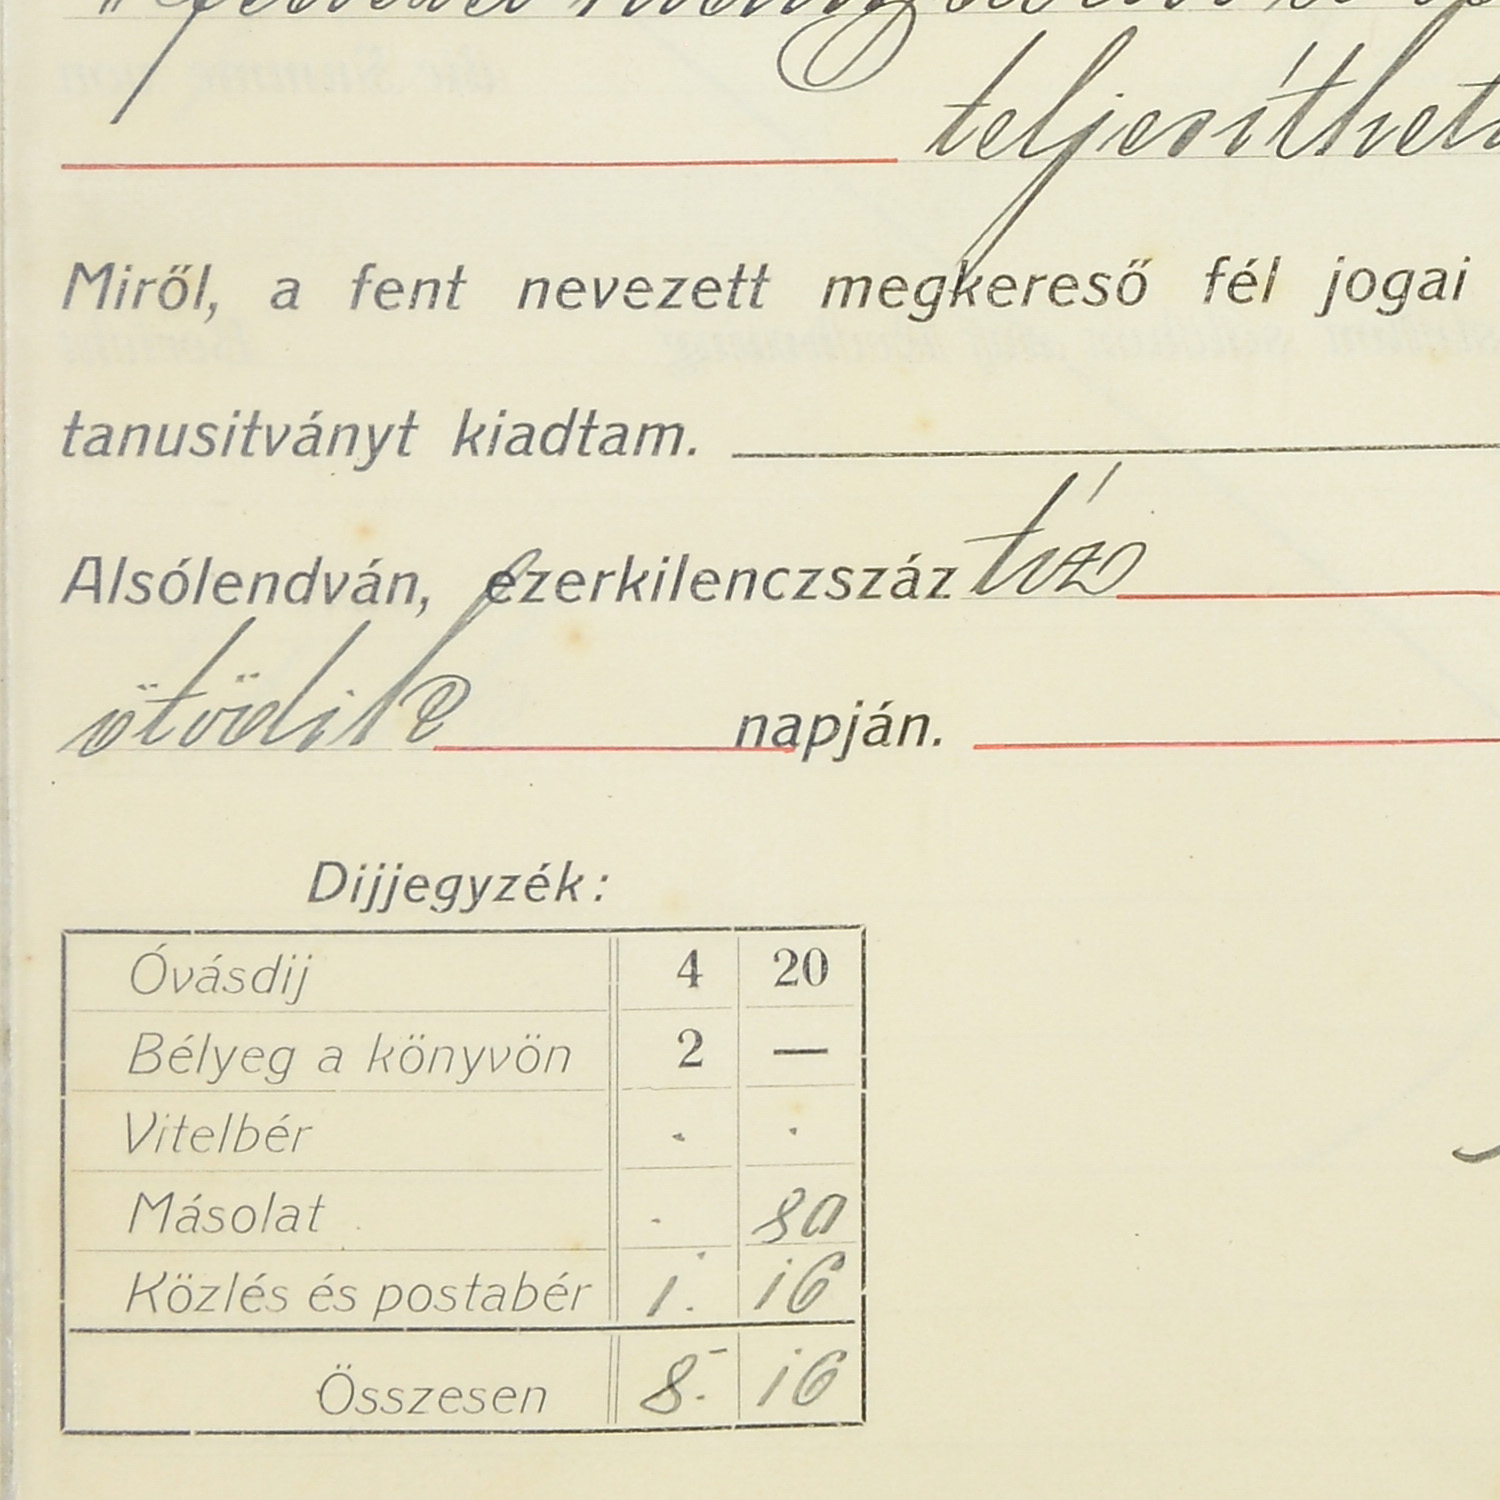 teljesíthet
Miről, a fent nevezett megkereső fél jogai
tanusitványt kiadtam.
Alsólendván, ezerkilenczszáz tíz
ötödik napján.
Dijjegyzék:
Óvásdij 4 20
Bélyeg a könyvön 2 —
Vitelbér . .
Másolat . 80
Közlés és postabér 1. 16
Összesen 8.- 16